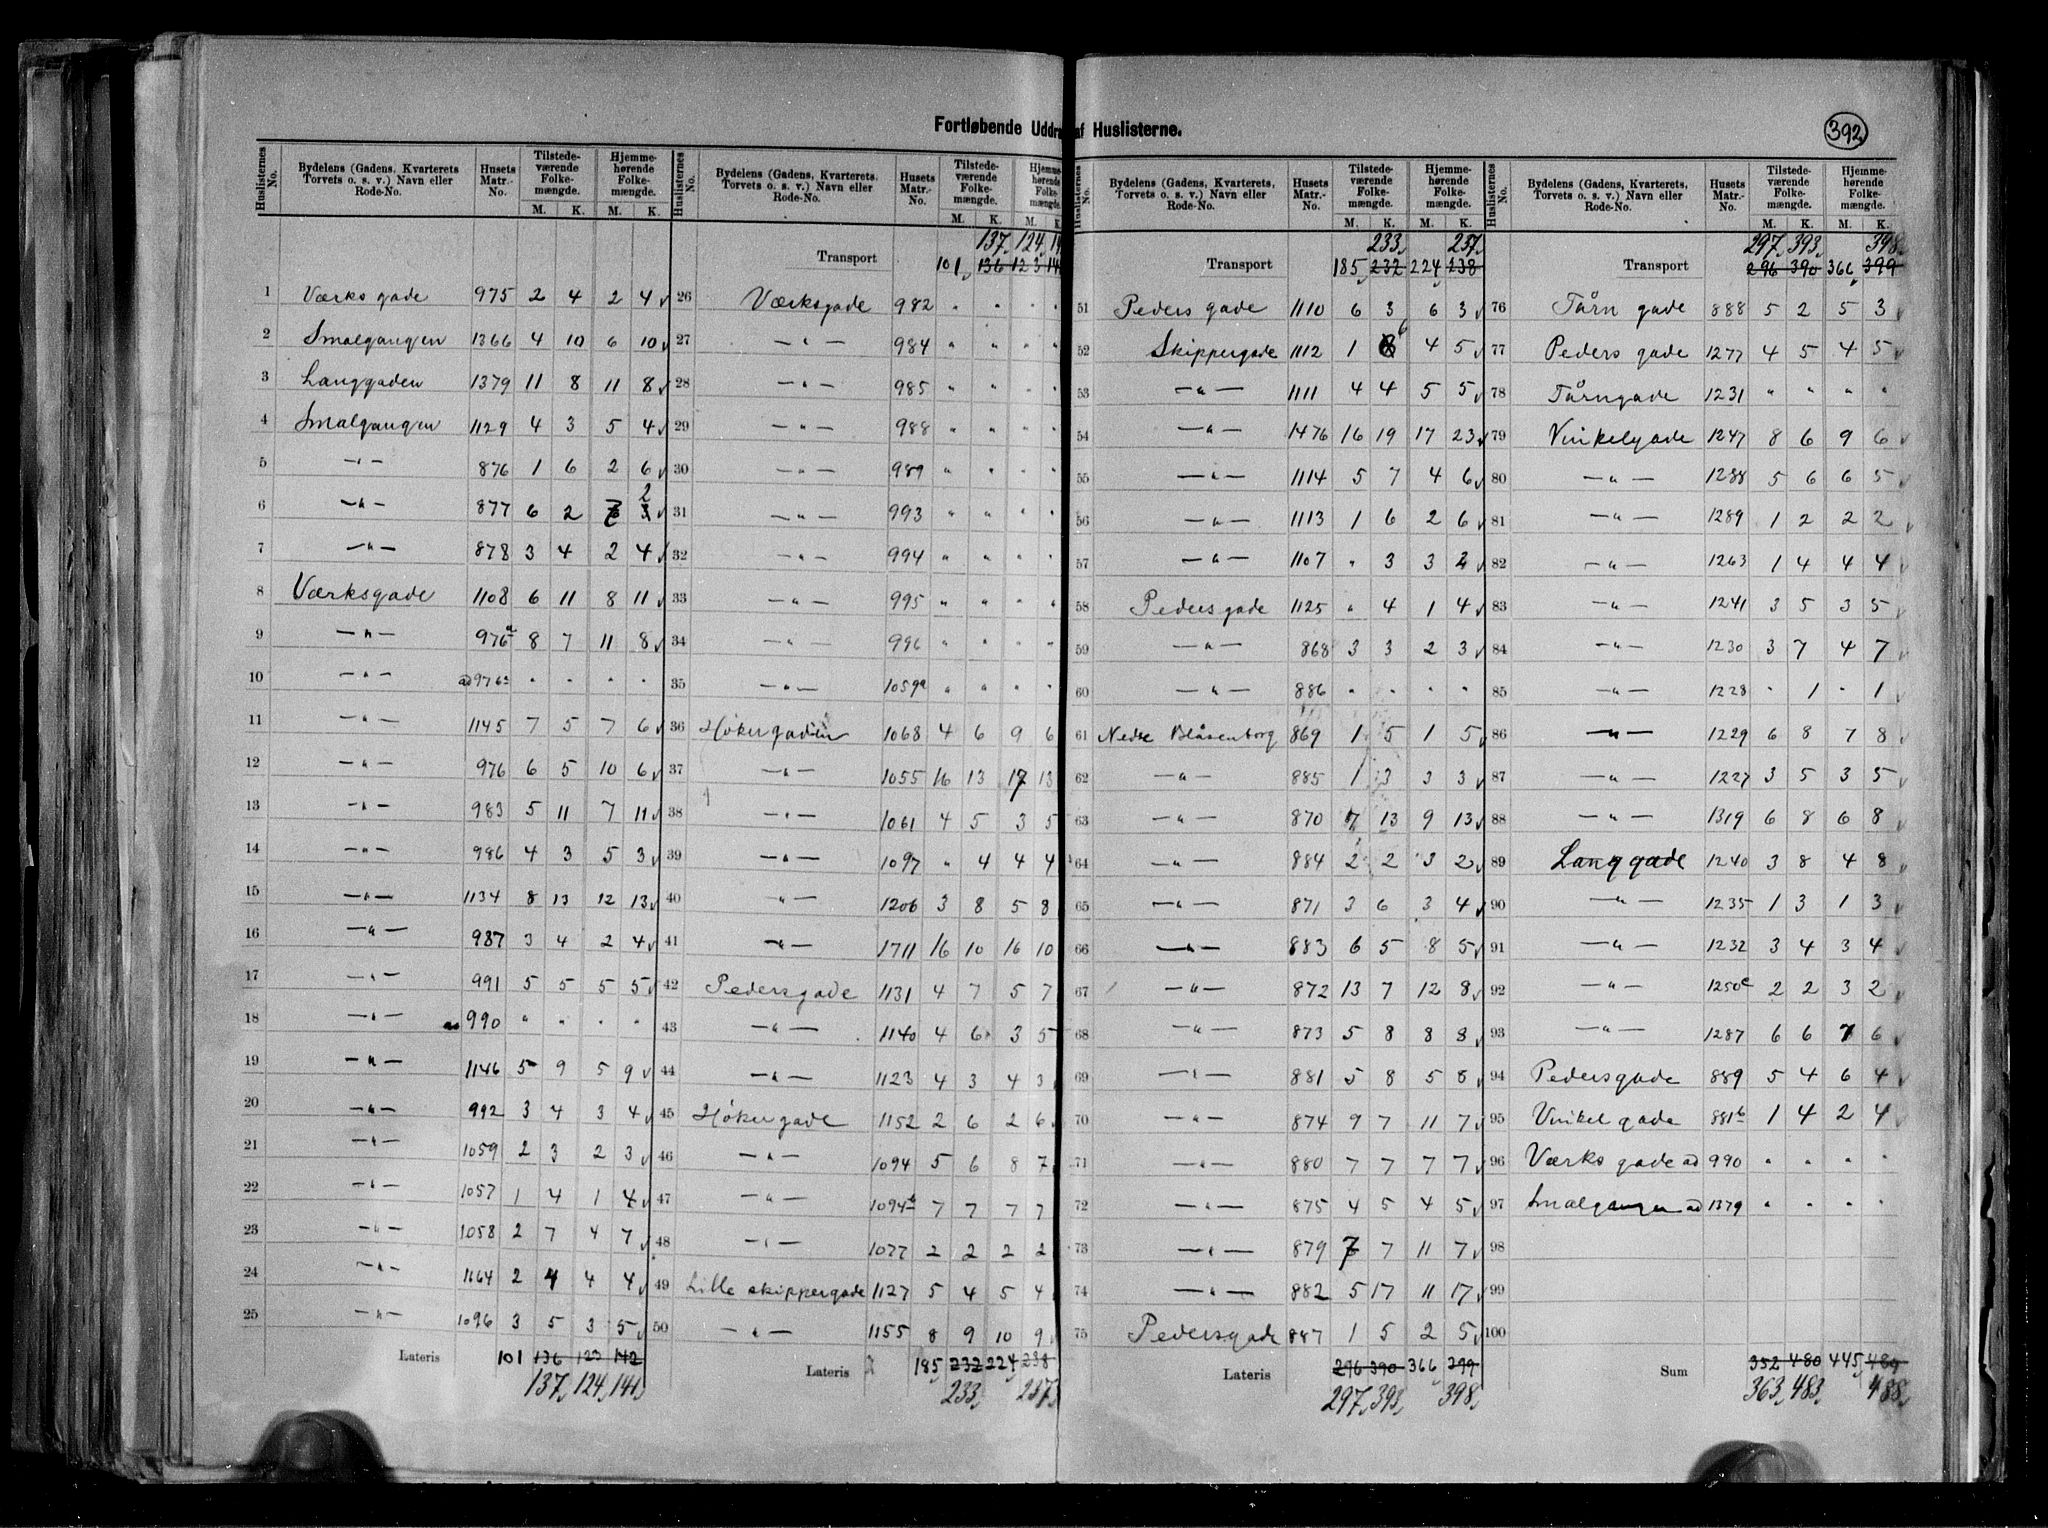 Fortløbende Uddrag af Huslisterne.
392
Huslisternes No. Bydelens (Gadens, Kvarterets Torvets o. s. v.) Navn eller Rode-No. Husets Matr.-No. Tilstedeværende Folkemængde. M. K. Hjemmehørende Folkemængde. M. K.
1 Værksgade 975 2 4 2 4
2 Smalgangen 1366 4 10 6 10
3 Langgaden 1379 11 8 11 8
4 Smalgangen 1129 4 3 5 4
5 —"— 876 1 6 2 6
6 —"— 877 6 2 6 2
7 —"— 878 3 4 2 4
8 Værksgade 1108 6 11 8 11
9 —"— 976a 8 7 11 8
10 —"— ad 976a " " " "
11 —"— 1145 7 5 7 6
12 —"— 976 6 5 10 6
13 —"— 983 5 11 7 11
14 —"— 986 4 3 5 3
15 —"— 1134 8 13 12 13
16 —"— 987 3 4 2 4
17 —"— 991 5 5 5 5
18 —"— 990 " " " "
19 —"— 1146 5 9 5 9
20 —"— 992 3 4 3 4
21 —"— 1059 2 3 2 3
22 —"— 1057 1 4 1 4
23 —"— 1058 2 7 4 7
24 —"— 1164 2 4 4 4
25 —"— 1096 3 5 3 5
Lateris 101 136 123 142
137, 124, 141
Huslisternes No. Bydelens (Gadens, Kvarterets, Torvets o. s. v.) Navn eller Rode-No. Husets Matr.-No. Tilstedeværende Folkemængde. M. K. Hjemmehørende Folkemængde. M. K.
137, 124, 141
Transport 101, 136 123 142
26 Værksgade 982 " " " "
27 —"— 984 " " " "
28 —"— 985 " " " "
29 —"— 988 " " " "
30 —"— 989 " " " "
31 —"— 993 " " " "
32 —"— 994 " " " "
33 —"— 995 " " " "
34 —"— 996 " " " "
35 —"— 1059a " " " "
36 Høkergaden 1068 4 6 9 6
37 —"— 1055 16 13 17 13
38 —"— 1061 4 5 3 5
39 —"— 1097 " 4 4 4
40 —"— 1206 3 8 5 8
41 —"— 1711 16 10 16 10
42 Pedersgade 1131 4 7 5 7
43 —"— 1140 4 6 3 5
44 —"— 1123 4 3 4 3
45 Høkergade 1152 2 6 2 6
46 —"— 1094 5 6 8 7
47 —"— 1094b 7 7 7 7
48 —"— 1077 2 2 2 2
49 Lille skippergade 1127 5 4 5 4
50 —"— 1155 8 9 10 9
Lateris 185, 232 224, 238
233, 237,
Huslisternes No. Bydelens (Gadens, Kvarterets, Torvets o. s. v.) Navn eller Rode-No. Husets Matr.-No. Tilstedeværende Folkemængde. M. K. Hjemmehørende Folkemængde. M. K.
233, 237,
Transport 185, 232 224, 238
51 Pedersgade 1110 6 3 6 3
52 Skippergade 1112 1 6 4 5
53 —"— 1111 4 4 5 5
54 —"— 1476 16 19 17 23
55 —"— 1114 5 7 4 6
56 —"— 1113 1 6 2 6
57 —"— 1107 " 3 3 2
58 Pedersgade 1125 " 4 1 4
59 —"— 868 3 3 2 3
60 —"— 886 " " " "
61 Nedre Blåsenborg 869 1 5 1 5
62 —"— 885 1 3 3 3
63 —"— 870 7 13 9 13
64 —"— 884 2 2 3 2
65 —"— 871 3 6 3 4
66 —"— 883 6 5 8 5
67 —"— 872 13 7 12 8
68 —"— 873 5 8 8 8
69 —"— 881 5 8 5 8
70 —"— 874 9 7 11 7
71 —"— 880 7 7 7 7
72 —"— 875 4 5 4 5
73 —"— 879 7 7 11 7
74 —"— 882 5 17 11 17
75 Pedersgade 887 1 5 2 5
Lateris 296 390 366 399
297, 393, 398,
Huslisternes No. Bydelens (Gadens, Kvarterets, Torvets o. s. v.) Navn eller Rode-No. Husets Matr.-No. Tilstedeværende Folkemængde. M. K. Hjemmehørende Folkemængde. M. K.
297, 393, 398,
Transport 296 390 366 399
76 Tårngade 888 5 2 5 3
77 Pedersgade 1277 4 5 4 5
78 Tårngade 1231 " " " "
79 Vinkelgade 1247 8 6 9 6
80 —"— 1288 5 6 6 5
81 —"— 1289 1 2 2 2
82 —"— 1263 1 4 4 4
83 —"— 1241 3 5 3 5
84 —"— 1230 3 7 4 7
85 —"— 1228 " 1 " 1
86 —"— 1229 6 8 7 8
87 —"— 1227 3 5 3 5
88 —"— 1319 6 8 6 8
89 Langgade 1240 3 8 4 8
90 —"— 1235 1 3 1 3
91 —"— 1232 3 4 3 4
92 —"— 1250c 2 2 3 2
93 —"— 1287 6 6 7 6
94 Pedersgade 889 5 4 6 4
95 Vinkelgade 881b 1 4 2 4
96 Værksgade ad 990 " " " "
97 Smalgangen ad 1379 " " " "
98
99
100
Sum 352 480 445, 489
363, 483, 488,